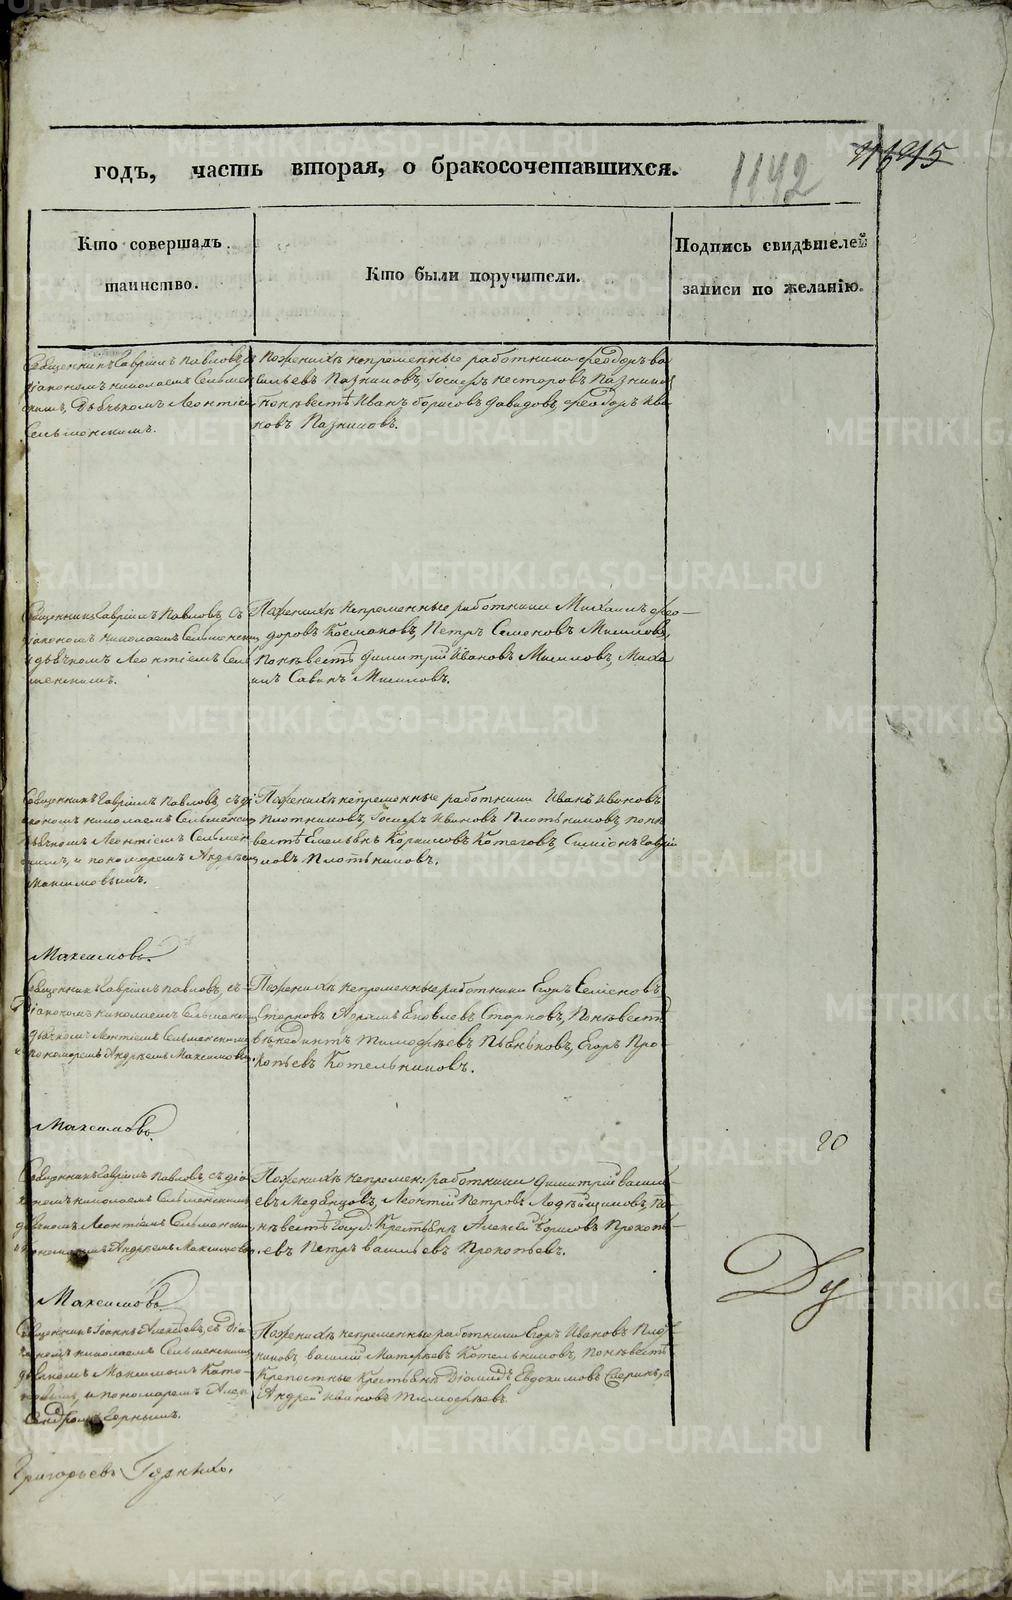 годъ, часть вторая, о бракосочетавшихся.
1142
Кто совершалъ
таинство.
Кто были поручители.
Подпись свидѣтелей
записи по желанію.
Священникъ Гавріилъ Павловъ, съ
діакономъ Николаемъ Сельменскимъ,
Дьячкомъ Леонтіемъ
Сельменскимъ.
По женихѣ непременные работники Феодоръ Ва
сильевъ Пазниковъ, Іосифъ Несторовъ Пазниковъ
по невестѣ Иванъ Борисовъ Давидовъ, Феодоръ Ива
новъ Пазниковъ.
Священникъ Гавріилъ Павловъ, съ
діакономъ Николаемъ Сельменскимъ
и дьячкомъ Леонтіемъ Сель
менскимъ.
По женихѣ непременные работники Михаилъ Фео—
доровъ Космаковъ, Петръ Семеновъ Мисиловъ,
по невестѣ Димитрій Ивановъ Мисиловъ, Миха
илъ Савинъ Мисиловъ.
Священникъ Гавріилъ Павловъ, съ ді
акономъ Николаемъ Сельменскимъ
дьячкомъ Леонтіемъ Сельмен
скимъ, и пономаремъ Андреемъ
Максимовымъ.
По женихѣ непременные работники Иванъ Ивановъ
Плотниковъ, Іосифъ Ивановъ Плотниковъ, по не
вестѣ Емельянъ Корниловъ Котеговъ, Симіонъ Гаврі
иловъ Плотниковъ.
Максимовъ.
Священникъ Гавріилъ Павловъ, съ
діакономъ Николаемъ Сельменскимъ
дьячкомъ Леонтіемъ Сельменскимъ
и пономаремъ Андреемъ Максимовымъ.
По женихѣ непременные работники Егоръ Семеновъ
Сторновъ Абрамъ Яковлевъ Сторновъ, по невестѣ
Тимофеевъ Пьянковъ, Егоръ Про—
копьевъ Котельниковъ.
Максимовъ.
Священникъ Гавріилъ Павловъ, съ діа
кономъ Николаемъ Сельменскимъ
дьячкомъ Леонтіемъ Сельменскимъ
и пономаремъ Андреемъ Максимовымъ
По женихѣ непремен: работники Димитрій Василь—
евъ Меданцовъ, Леонтій Петровъ по
невестѣ Госуд: Крестьяне Алексей Борисовъ Прокопь—
евъ Петръ Васильевъ Прокопьевъ.
20
Максимовъ
Священникъ Іоаннъ Алексеевъ, съ Діа—
кономъ Николаемъ Сельменскимъ
дьячкомъ Максимомъ Като
и пономаремъ Алек
сандромъ Горныхъ.
По женихѣ непременные работники Егоръ Ивановъ Плот
никовъ, Василій Матфеевъ Котельниковъ, по невестѣ
Крепостные Крестьяне Діомидъ Евдокимовъ и
Андрей Ивановъ Тимофеевъ
Григорьевъ Горныхъ.
METRIKI.GASO-URAL.RU